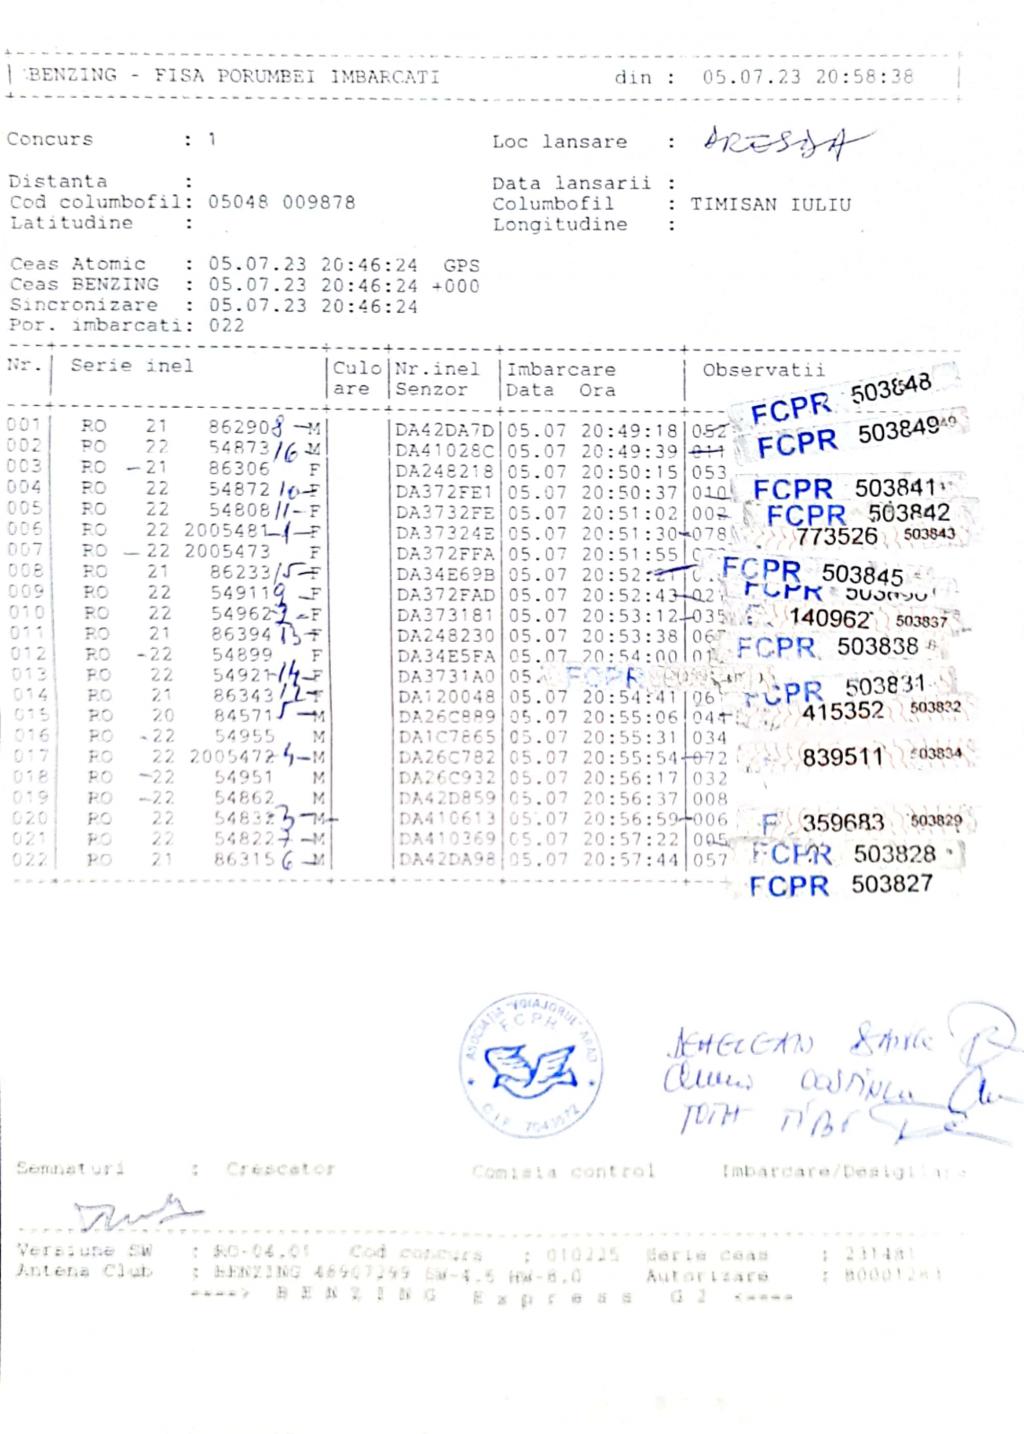 BENZING - FISA PORUMBEI IMBARCATI din : 05.07.23 20:58:38
Concurs : 1 Loc lansare :
Distanta : Data lansarii :
Cod columbofil: 05048 009878 Columbofil : TIMISAN IULIU
Latitudine : Longitudine :
Ceas Atomic : 05.07.23 20:46:24 GPS
Ceas BENZING : 05.07.23 20:46:24 +000
Sincronizare : 05.07.23 20:46:24
Por. imbarcati: 022
Nr. Serie inel Culo Nr.inel Imbarcare Observatii
are Senzor Data Ora
FCPR 503848
001 RO 21 862908 M DA42DA7D 05.07 20:49:18 052
FCPR 503849
002 RO 22 54873 16 M DA41028C 05.07 20:49:39 011
003 RO -21 86306 F DA248218 05.07 20:50:15 053
004 RO 22 54872 10 F DA372FE1 05.07 20:50:37 010 FCPR 503841
005 RO 22 54808 11 F DA3732FE 05.07 20:51:02 002 FCPR 503842
006 RO 22 2005481 1 F DA37324E 05.07 20:51:30 078 773526 503843
007 RO -22 2005473 F DA372FFA 05.07 20:51:55
008 RO 21 86233 15 F DA34E69B 05.07 20:52:21 FCPR 503845
009 RO 22 54911 9 F DA372FAD 05.07 20:52:43 021 FCPR
010 RO 22 54962 2 F DA373181 05.07 20:53:12 035 140962 503837
011 RO 21 86394 13 F DA248230 05.07 20:53:38 FCPR 503838
012 RO -22 54899 F DA34E5FA 05.07 20:54:00
013 RO 22 54921 14 F DA3731A0 05. FCPR FCPR 503831
014 RO 21 86343 12 F DA120048 05.07 20:54:41
015 RO 20 84571 5 M DA26C889 05.07 20:55:06 044 415352 503832
016 RO -22 54955 M DA1C7865 05.07 20:55:31 034
017 RO 22 2005472 4 M DA26C782 05.07 20:55:54 072 839511 503834
018 RO -22 54951 M DA26C932 05.07 20:56:17 032
019 RO -22 54862 M DA42D859 05.07 20:56:37 008
020 RO 22 54832 3 M DA410613 05.07 20:56:59 006 F 359683 503829
021 RO 22 54822 7 M DA410369 05.07 20:57:22 005 FCPR 503828
022 RO 21 86315 6 M DA42DA98 05.07 20:57:44 057
FCPR 503827
ASOCIATIA "VOIAJORUL" ARAD
F.C.P.R.
Semnaturi : Crescator Comisia control Imbarcare/Desigilare
Versiune SW : RO-04.01 Cod concurs : 010225 Serie ceas : 231481
Antena Club : BENZING SW-4.5 HW-8.0 Autorizare :
----> BENZING Express G2 <----